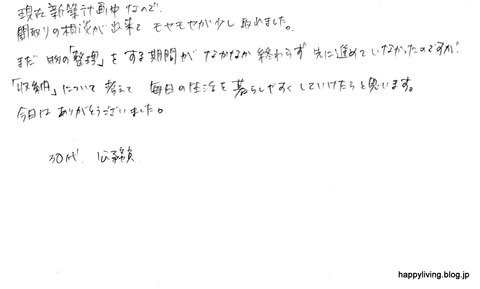 現在新築計画中なので、
間取りの相談が出来て モヤモヤが少し取れました。
まだ 物の「整理」を する期間が なかなか 終わらず 先に進めて いなかったのですが、
「収納」について 考えて 毎日の生活を 暮らしやすく していけたらと思います。
今日は ありがとうございました。
30代、公務員
happyliving.blog.jp